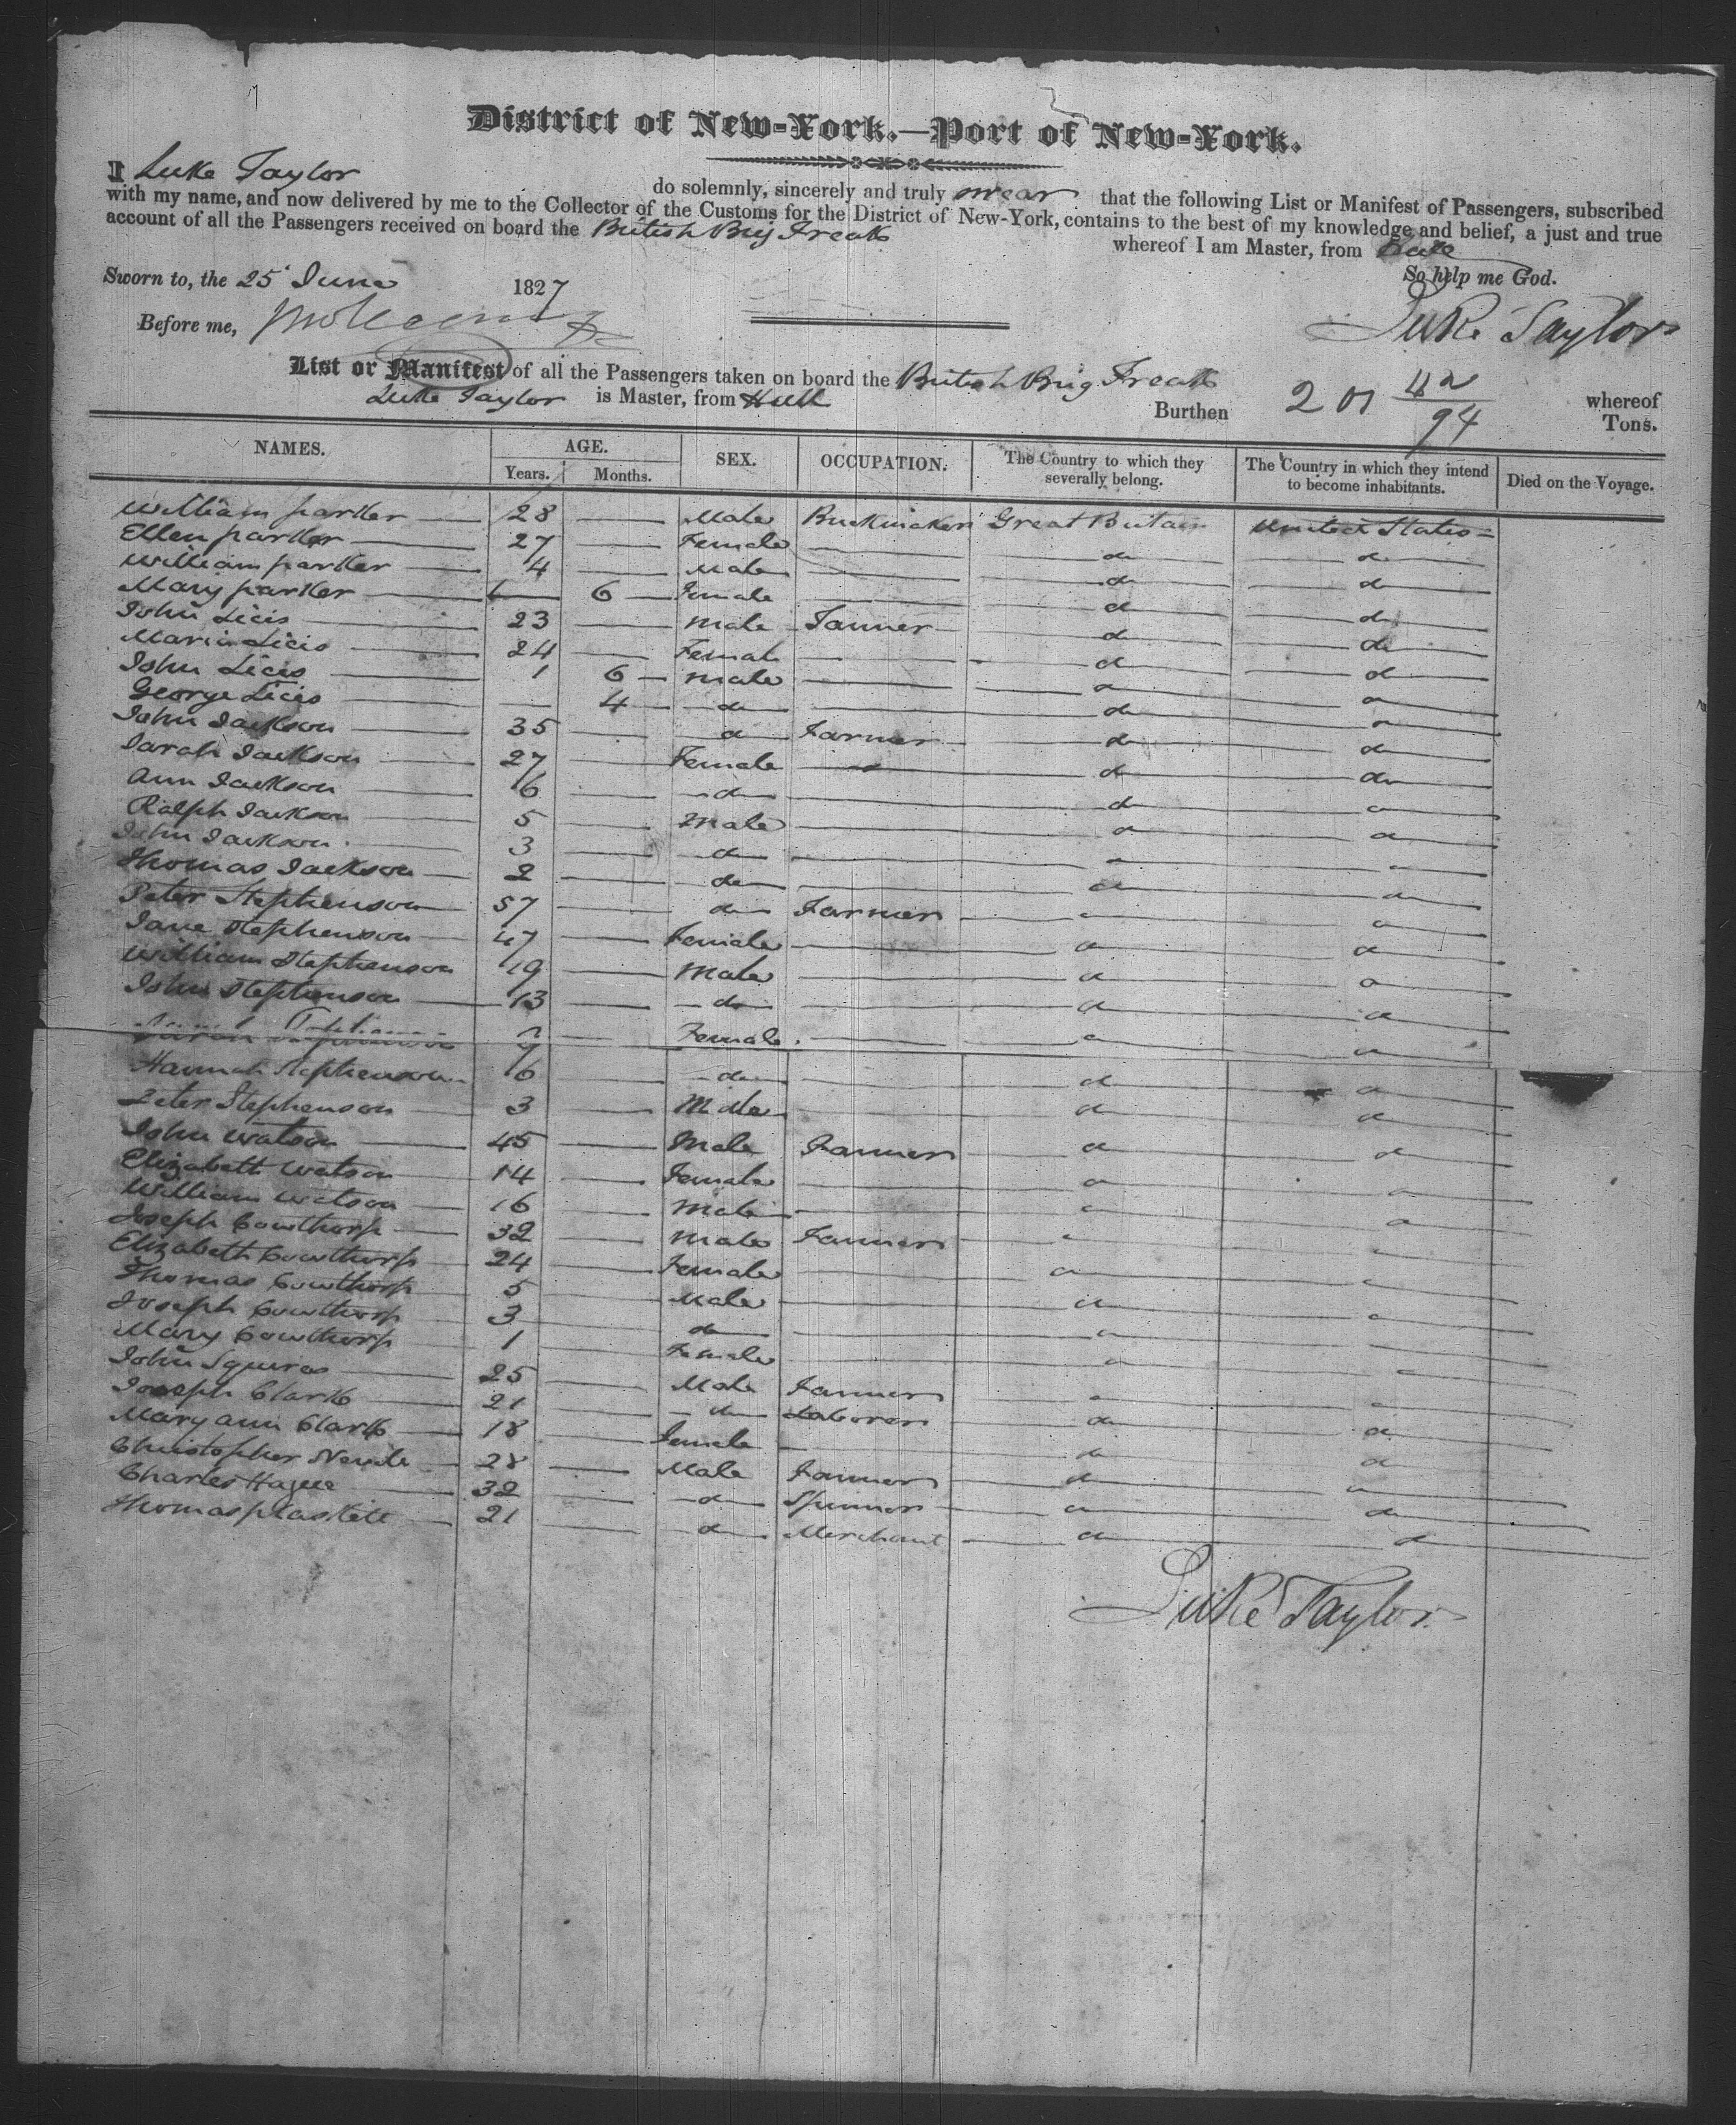 District of New-York.—Port of New-York.
I Luke Taylor do solemnly, sincerely and truly swear that the following List or Manifest of Passengers, subscribed
with my name, and now delivered by me to the Collector of the Customs for the District of New-York, contains to the best of my knowledge and belief, a just and true
account of all the Passengers received on board the British Brig Freak whereof I am Master, from Hull
Sworn to, the 25 June 1827 So help me God.
Before me, Luke Taylor
List or Manifest of all the Passengers taken on board the British Brig Freak whereof
Luke Taylor is Master, from Hull Burthen 201 42/94 Tons.
NAMES. AGE. Years. Months. SEX. OCCUPATION. The Country to which they severally belong. The Country in which they intend to become inhabitants. Died on the Voyage.
William parker 28 Male Great Britain United States
Ellen parker 27 Female do do
William parker 4 Male do do
Mary parker 6 Female do do
John 23 male do do
Maria 24 Female do do
John 1 6 male do do
George 4 do do do
John Jackson 35 do Farmer do do
Sarah Jackson 27 Female do do
Ann Jackson 6 do do do
Ralph Jackson 5 Male do do
John Jackson 3 do do do
Thomas Jackson 2 do do do
Peter Stephenson 57 do Farmer do do
Jane Stephenson 47 Female do do
William Stephenson 19 Male do do
John Stephenson 13 do do do
Stephenson Female do do
Hannah Stephenson 6 do do do
Peter Stephenson 3 Male do do
John Watson 45 Male Farmer do do
Elizabeth Watson 14 Female do do
William Watson 16 Male do do
Joseph Cowthorp 32 Male Farmer do do
Elizabeth Cowthorp 24 Female do do
Thomas Cowthorp 5 Male do do
Joseph Cowthorp 3 do do do
Mary Cowthorp 1 Female do do
John Squires 25 Male Farmer do do
Joseph Clark 21 do Laborer do do
Mary ann Clark 18 Female do do
Christopher 28 Male Farmer do do
Charles Hague 32 do Spinner do do
Thomas 21 do Merchant do do
Luke Taylor